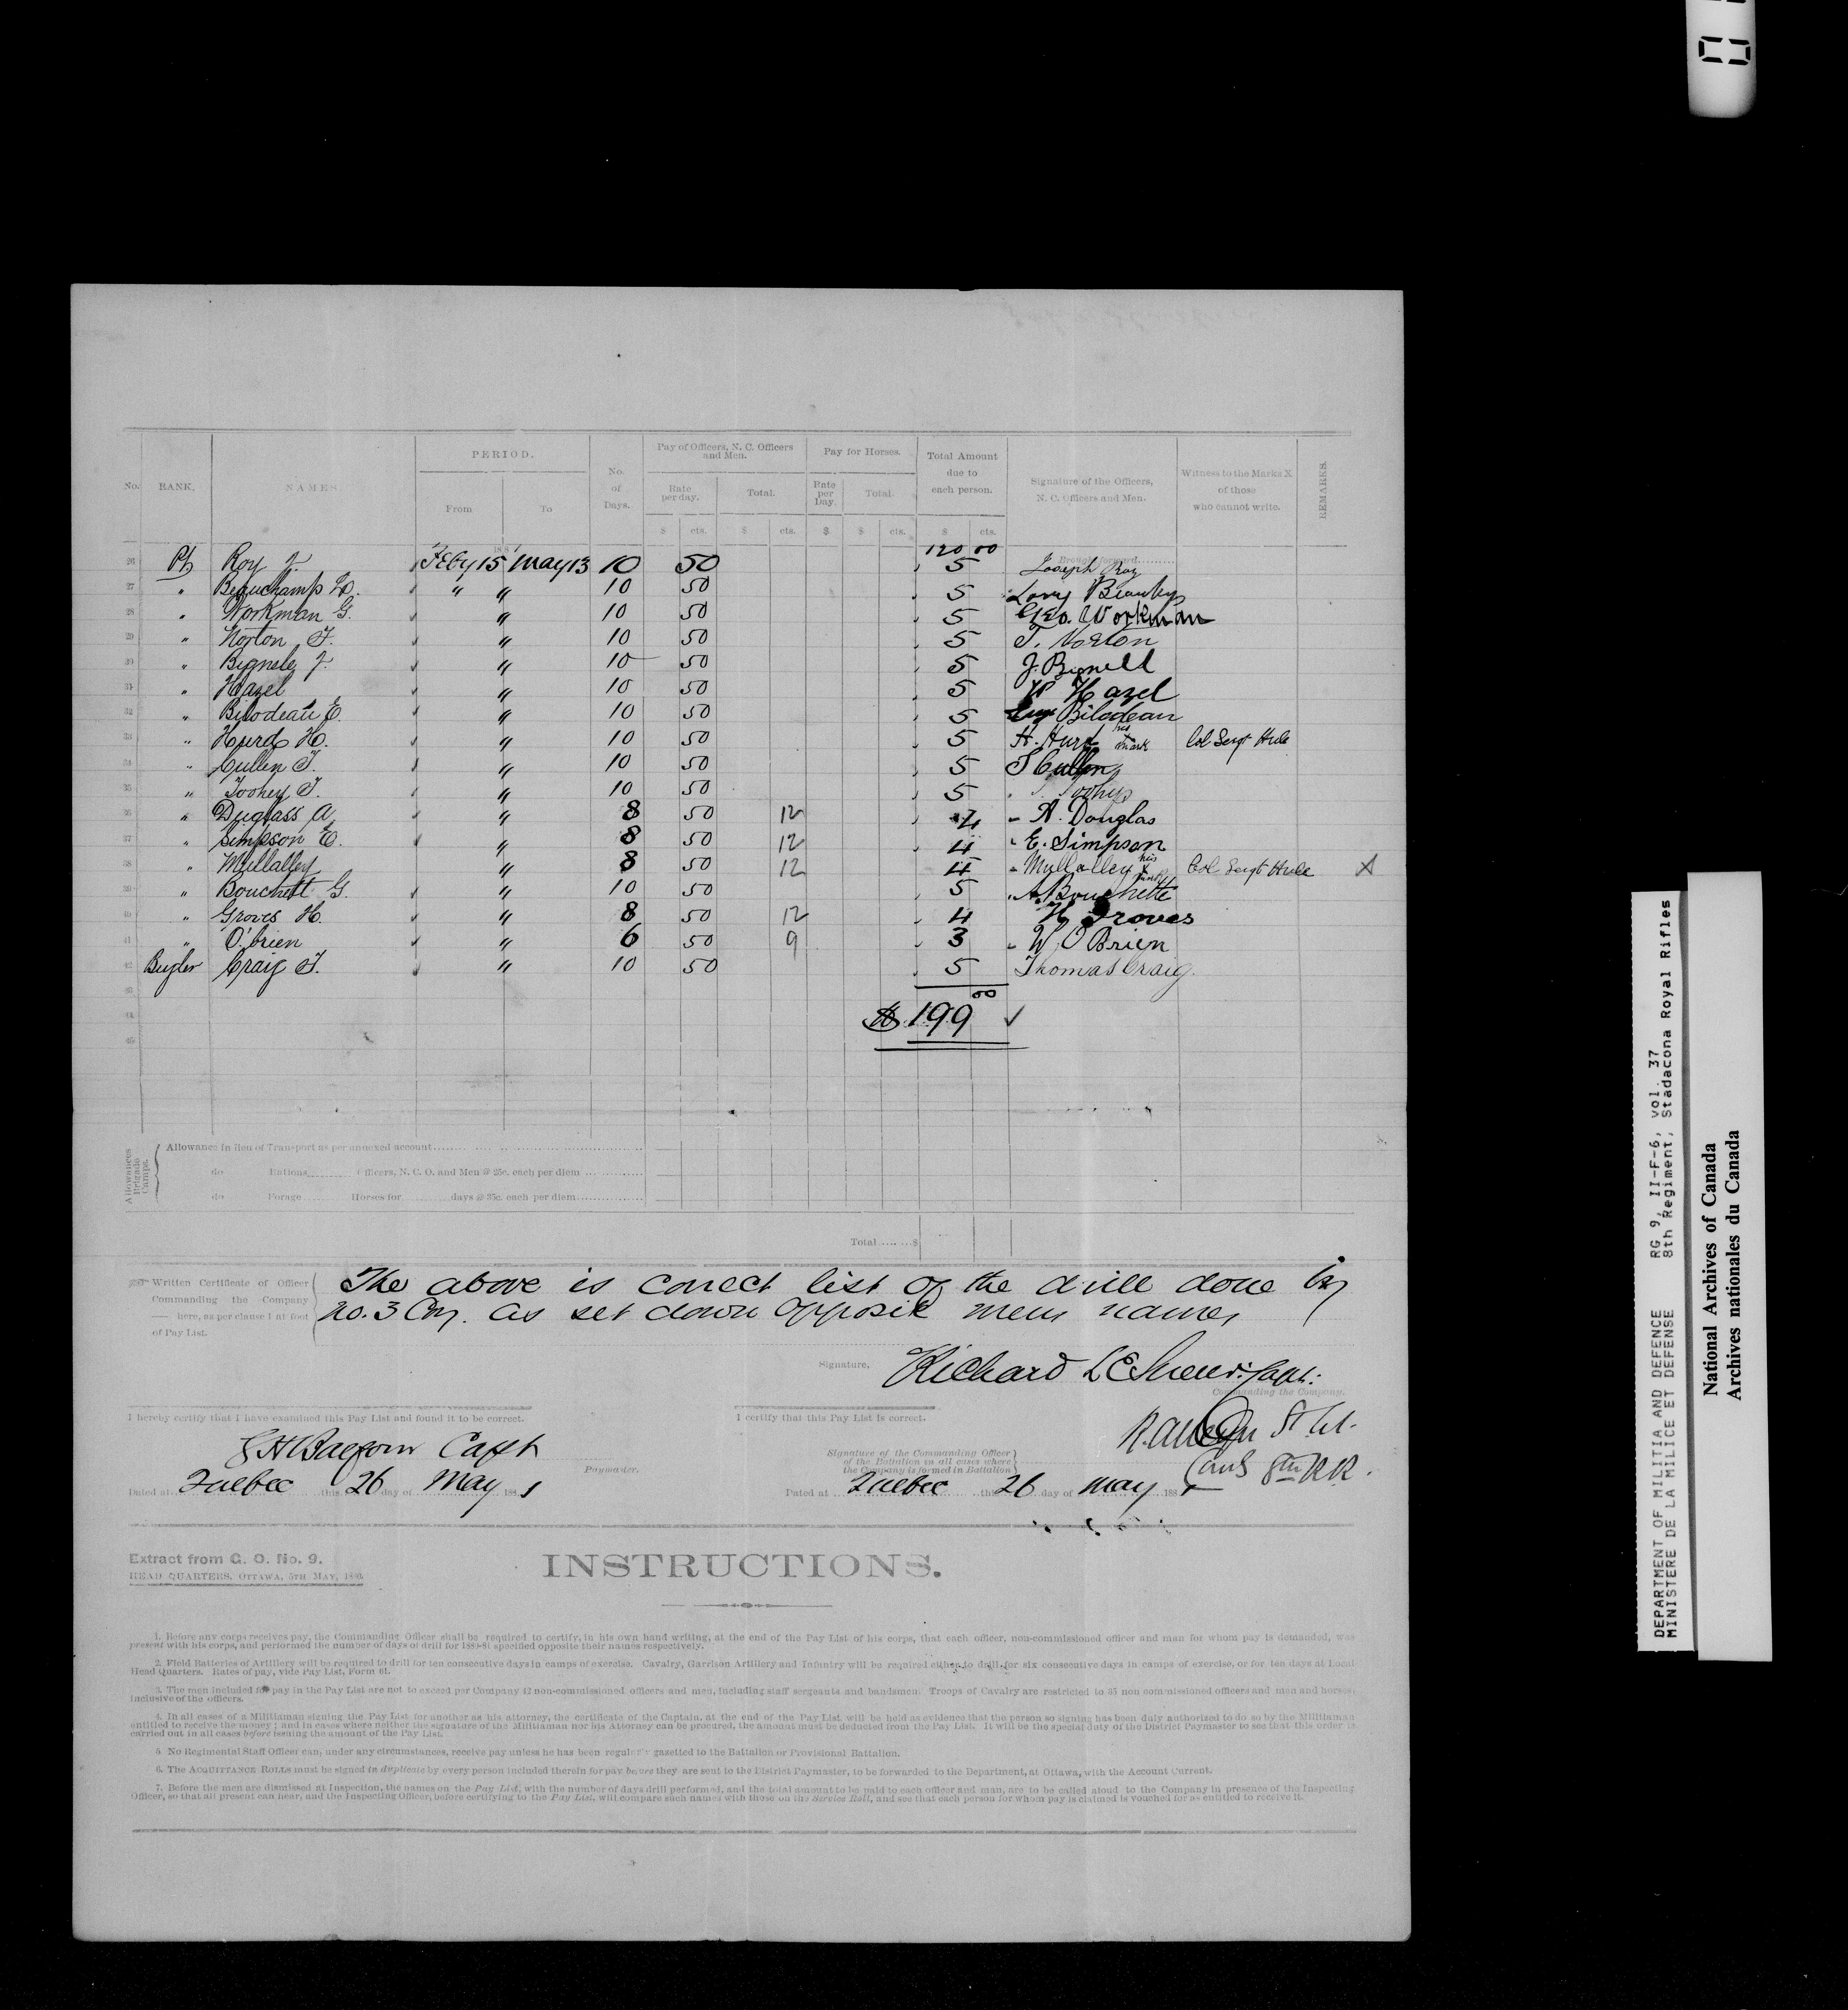 No. RANK. NAMES. PERIOD. From To No. of Days. Pay of Officers, N. C. Officers and Men. Rate per day. Total. Pay for Horses. Rate per Day. Total. Total Amount due to each person. Signature of the Officers, N. C. Officers and Men. Witness to the Marks X of those who cannot write. REMARKS.
$ cts. $ cts. $ $ cts. $ cts.
188 120 00 Brought forward
26 Pt Roy J. Feby 15 May 13 10 50 5 Joseph Roy
27 " Beauchamp " " 10 50 5
28 " Workman G. " 10 50 5 Geo. Workman
29 " Norton T. " 10 50 5 T. Norton
30 " Bignele J. " 10 50 5 J. Bignell
31 " Hazel " 10 50 5 W Hazel
32 " Bilodeau E. " 10 50 5 Bilodeau
33 " Hurd H. " 10 50 5 H. Hurd his X mark Col Sergt
34 " Cullen T. " 10 50 5 T Cullen
35 " Toohey T. " 10 50 5 T. Toohy
36 " Duglass A " 8 50 12 4 A. Douglas
37 " Simpson E. " 8 50 12 4 E. Simpson
38 " Mullalley " 8 50 12 4 Mullalley his X mark Col Sergt X
39 " Bouchett G. " 10 50 5 Bouchette
40 " Groves H. " 8 50 12 4 H Groves
41 " O'brien " 6 50 9 3 W. O Brien
42 Bugler Craig T. " 10 50 5 Thomas Craig.
43
44 $ 199 00 ✓
45
Allowances Brigade Camps.
Allowance in lieu of Transport as per annexed account
do Rations Officers, N. C. O. and Men @ 25c. each per diem
do Forage Horses for days @ 35c. each per diem
Total $
Written Certificate of Officer Commanding the Company here, as per clause 1 at foot of Pay List.
The above is correct list of the drill done by
No. 3 Coy. as set down opposite mens names
Signature, Richard Capt:
Commanding the Company.
I hereby certify that I have examined this Pay List and found it to be correct.
I certify that this Pay List is correct.
Capt
Paymaster.
Signature of the Commanding Officer of the Battalion in all cases where the Company is formed in Battalion
Lt Col.
8th RR.
Dated at Quebec this 26 day of May 1881
Dated at Quebec this 26 day of May 188
Extract from G. O. No. 9.
HEAD QUARTERS, OTTAWA, 5TH MAY, 188
INSTRUCTIONS.
1. Before any corps receives pay, the Commanding Officer shall be required to certify, in his own hand writing, at the end of the Pay List of his corps, that each officer, non-commissioned officer and man for whom pay is demanded, was
present with his corps, and performed the number of days of drill for 1880-81 specified opposite their names respectively.
2. Field Batteries of Artillery will be required to drill for ten consecutive days in camps of exercise. Cavalry, Garrison Artillery and Infantry will be required either to drill for six consecutive days in camps of exercise, or for ten days at Local
Head Quarters. Rates of pay, vide Pay List, Form 61.
3. The men included for pay in the Pay List are not to exceed per Company 42 non-commissioned officers and men, including staff sergeants and bandsmen. Troops of Cavalry are restricted to 35 non commissioned officers and men and horses,
inclusive of the officers.
4. In all cases of a Militiaman signing the Pay List for another as his attorney, the certificate of the Captain, at the end of the Pay List will be held as evidence that the person so signing has been duly authorized to do so by the Militiaman
entitled to receive the money; and in cases where neither the signature of the Militiaman nor his Attorney can be procured, the amount must be deducted from the Pay List. It will be the special duty of the District Paymaster to see that this order is
carried out in all cases before issuing the amount of the Pay List.
5. No Regimental Staff Officer can, under any circumstances, receive pay unless he has been regularly gazetted to the Battalion or Provisional Battalion.
6. The ACQUITTANCE ROLLS must be signed in duplicate by every person included therein for pay before they are sent to the District Paymaster, to be forwarded to the Department, at Ottawa, with the Account Current.
7. Before the men are dismissed at Inspection, the names on the Pay List, with the number of days drill performed, and the total amount to be paid to each officer and man, are to be called aloud to the Company in presence of the Inspecting
Officer, so that all present can hear, and the Inspecting Officer, before certifying to the Pay List, will compare such names with those on the Service Roll, and see that each person for whom pay is claimed is vouched for as entitled to receive it.
DEPARTMENT OF MILITIA AND DEFENCE RG 9, II-F-6, vol. 37
MINISTERE DE LA MILICE ET DEFENSE 8th Regiment, Stadacona Royal Rifles
National Archives of Canada
Archives nationales du Canada